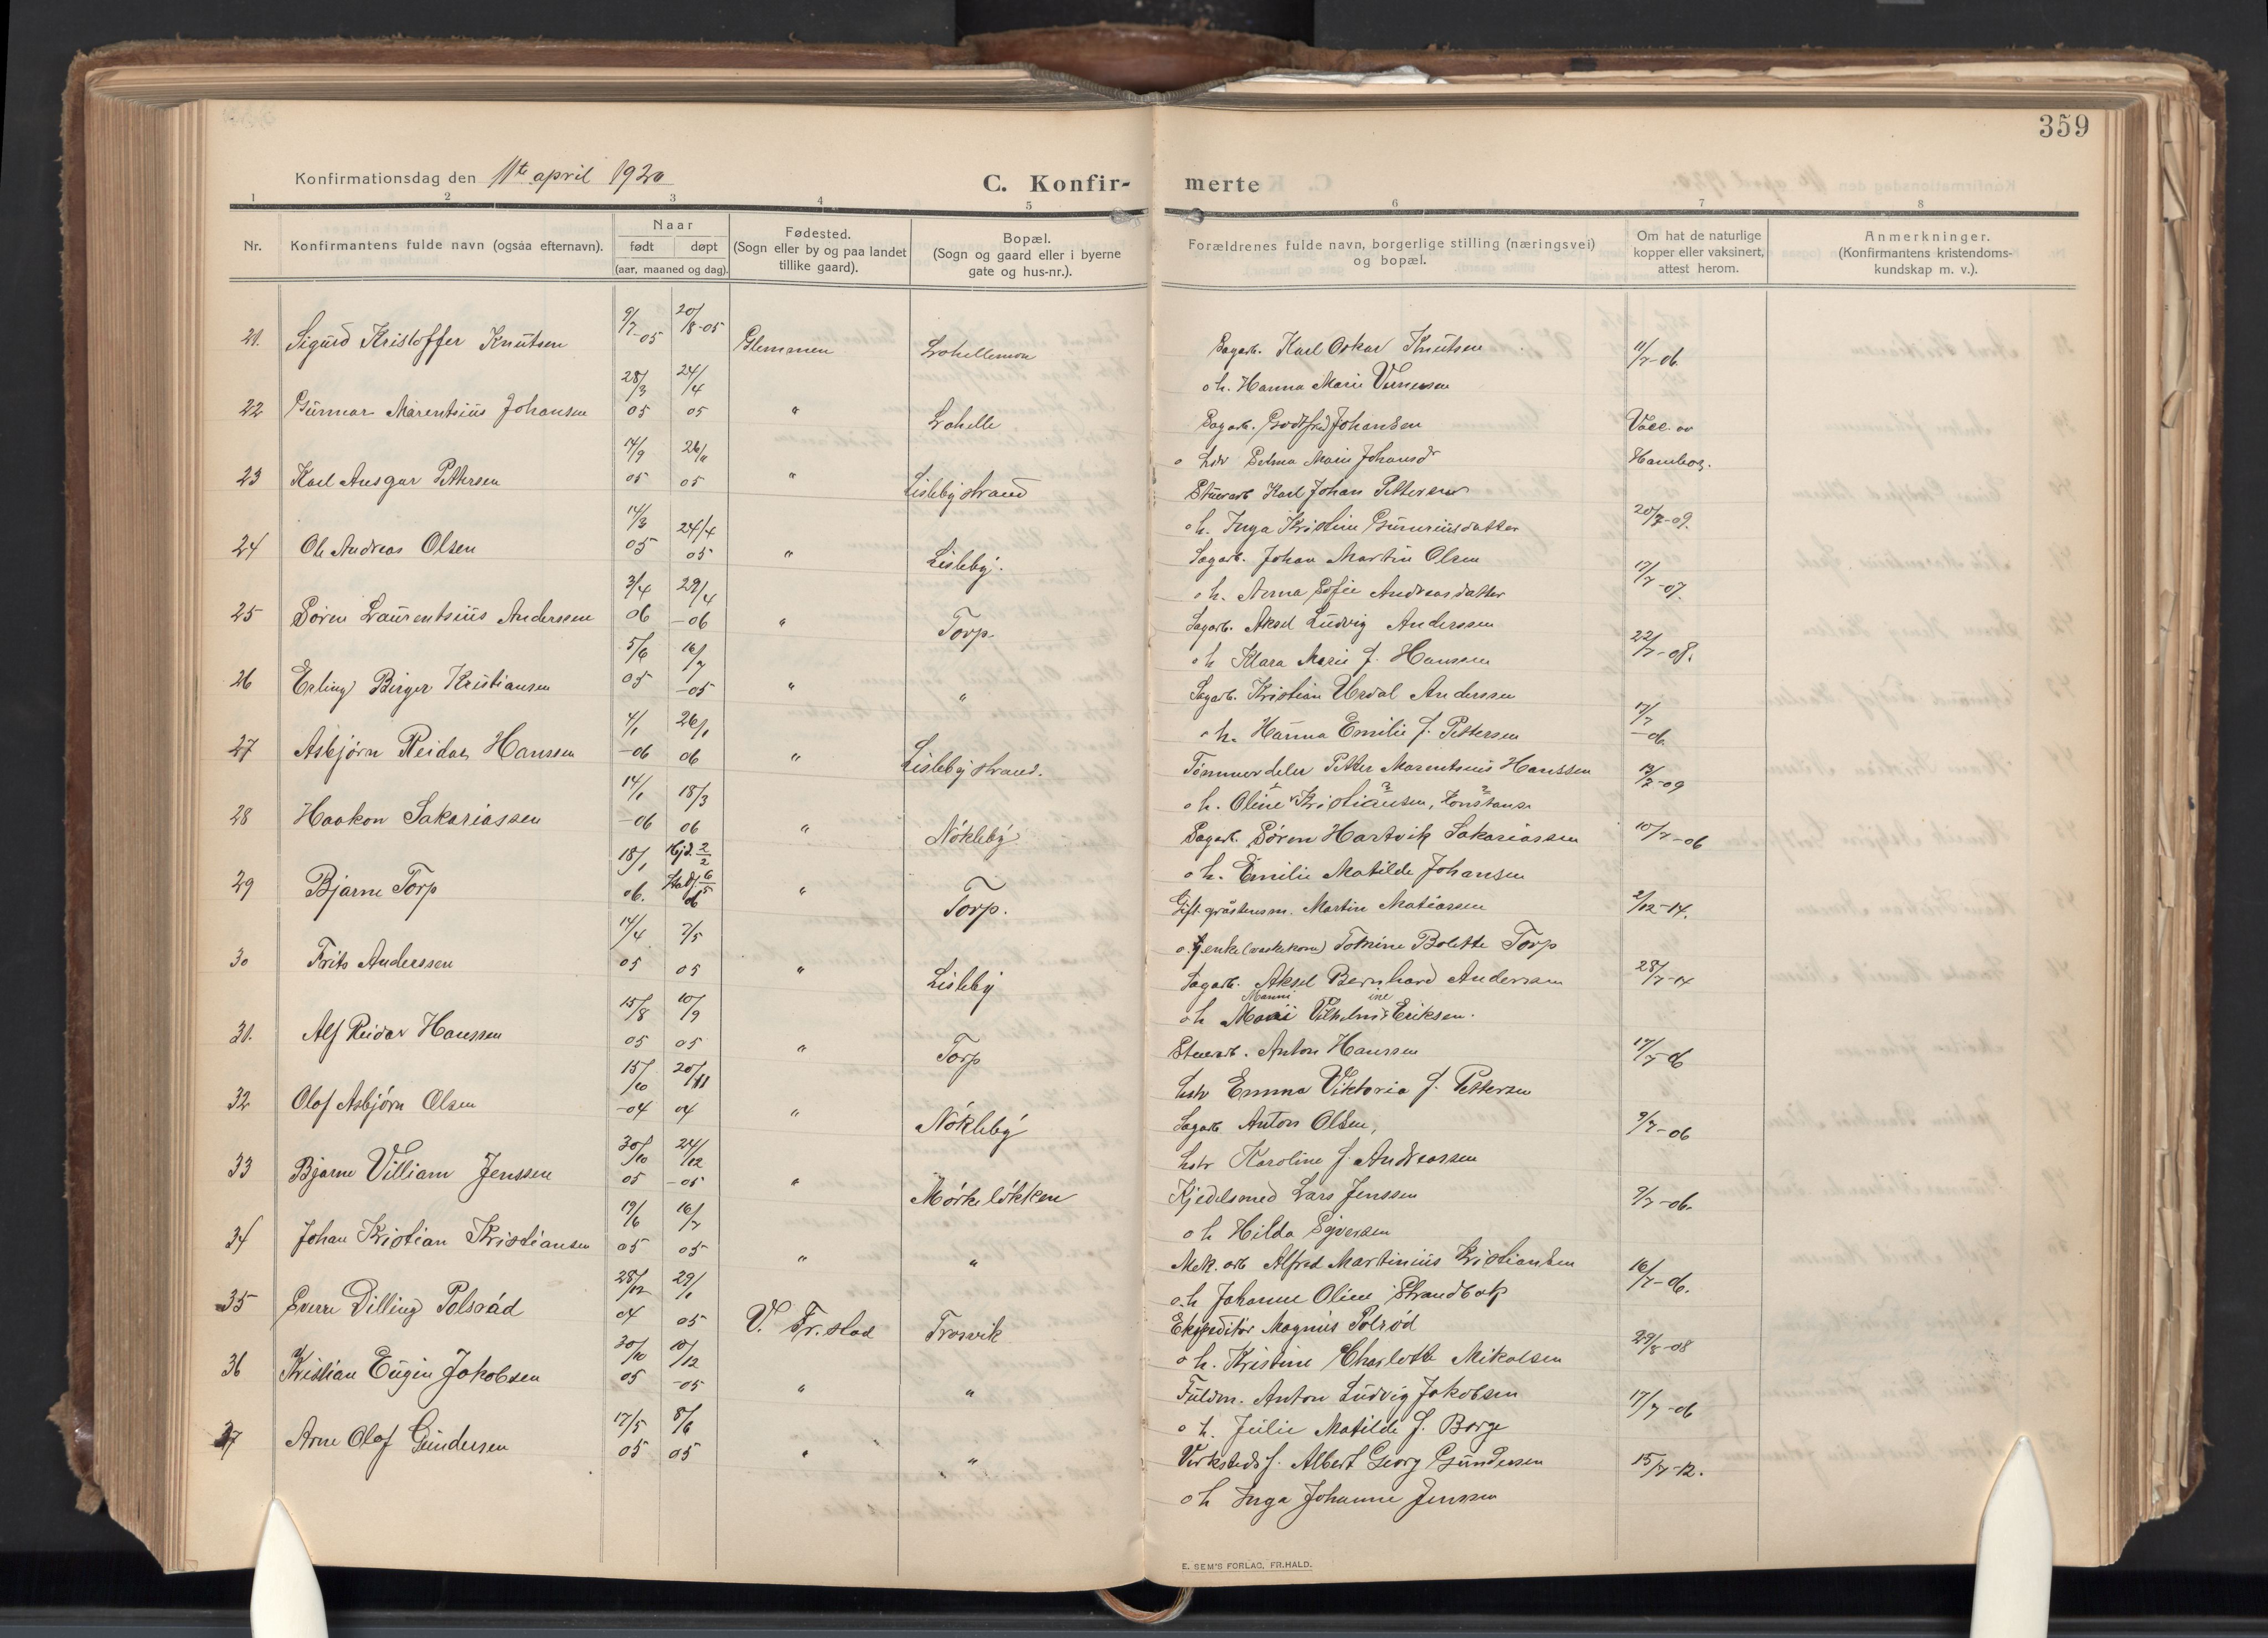 359
Konfirmationsdag den 11te april 1920
C. Konfir-
merte
1 2 3 4 5 6 7 8
Nr.
Konfirmantens fulde navn (ogsaa efternavn).
Naar
født døpt
(aar, maaned og dag).
Fødested.
(Sogn eller by og paa landet
tillike gaard).
Bopæl.
(Sogn og gaard eller i byerne
gate og hus-nr.).
Forældrenes fulde navn, borgerlige stilling (næringsvei)
og bopæl.
Om hat de naturlige
kopper eller vaksinert,
attest herom.
Anmerkninger.
(Konfirmantens kristendoms-
kundskap m. v.).
21. Sigurd Kristoffer Knutsen 9/7-05 20/8-05 Glemmen Lahellemoen Sagarb. Karl Oskar Knutsen 11/7-06
o h. Hanna Marie
22 Gunnar Marentsius Johansen 28/3 05 24/4 05 " Lahelle Sagarb. Godtfred Johansen Vacc. av
o hstr Selma Marie Johansdr Hambor.
23 Karl Ansgar Pettersen 14/9 05 26/11 05 " Lislebystrand Stuerarb Karl Johan Pettersen 20/7-09.
o h. Inga Kristine Gunniusdatter
24 Ole Andreas Olsen 14/3 05 24/4 05 " Lisleby. Sagarb. Johan Martin Olsen 17/7-07.
o h. Anna Sofie Andreasdatter
25 Søren Laurentsius Anderssen 3/4 06 29/4 -06 " Torp. Sagarb. Aksel Ludvig Anderssen 22/7-08.
o h Klara Marie f. Hanssen
26 Erling Birger Kristiansen 5/6 05 16/7 -05 " " Sagarb. Kristian Uredal Anderssen 17/7 -06.
o h. Hanna Emilie f. Pettersen
27 Asbjørn Reidar Hanssen 4/1 -06 26/1 06 " Lislebystrand. Tømmerdeler Petter Marentsius Hanssen 12/7-09
o h. Oline Kristiansen, Konstanse
28 Haakon Sakariassen 14/1 -06 18/3 06 " Nökleby Sagarb. Søren Hartvik Sakariassen 10/7-06
o h. Emilie Matilde Johansen
29 Bjarne Torp 18/1 06. Hjd. 2/2 Stadf. 6/5 06 " Torp. Gift gråstensm. Martin Matiassen 2/12-14.
o. enke (vaskekone) Tomine Bolette Torp
30 Frits Anderssen 14/4 05 7/5 05 " Lisleby Sagarb. Aksel Bernhard Anderssen 28/7-14
Manni ine
o h Marie Vilhelm Eriksen.
31. Alf Reidar Hanssen 15/8 05 10/9 05 " Torp Stuerarb. Anton Hanssen 17/7-06
hstr Emma Viktoria f. Pettersen
32 Olaf Asbjørn Olsen 15/10 -04 20/11 04 " Nökleby Sagarb Anton Olsen, 9/7-06
hstr Karoline f. Andreassen
33 Bjarne Villiam Jenssen 30/10 05 24/12 -05 " Mörkelökken Kjedelsmed Lars Jenssen 9/7-06.
o h Hilda Syversen
34 Johan Kristian Kristiansen 19/6 05 16/7 05 " " Mek. arb Alfred Martinius Kristiansen 16/7-06.
o. h Johanne Oline Strandbak
35 Sverre Dilling Polsrød 28/12 04 29/1 05 V. Fr. stad Trosvik Ekspeditør Magnus Polsrød 29/8-08
o h. Kristine Charlotte Mikalsen
36 Kristian Eugen Jakobsen 30/10 05 10/12 -05 " " Fuldm. Anton Ludvig Jakobsen 17/7-06
o h. Julie Matilde f. Borge
37 Arne Olaf Gundersen 17/5 05 8/6 05 " " Verkstedsf. Albert Georg Gundersen 15/7-12.
o h Inga Johanne Jenssen
E. SEM'S FORLAG, FR.HALD.